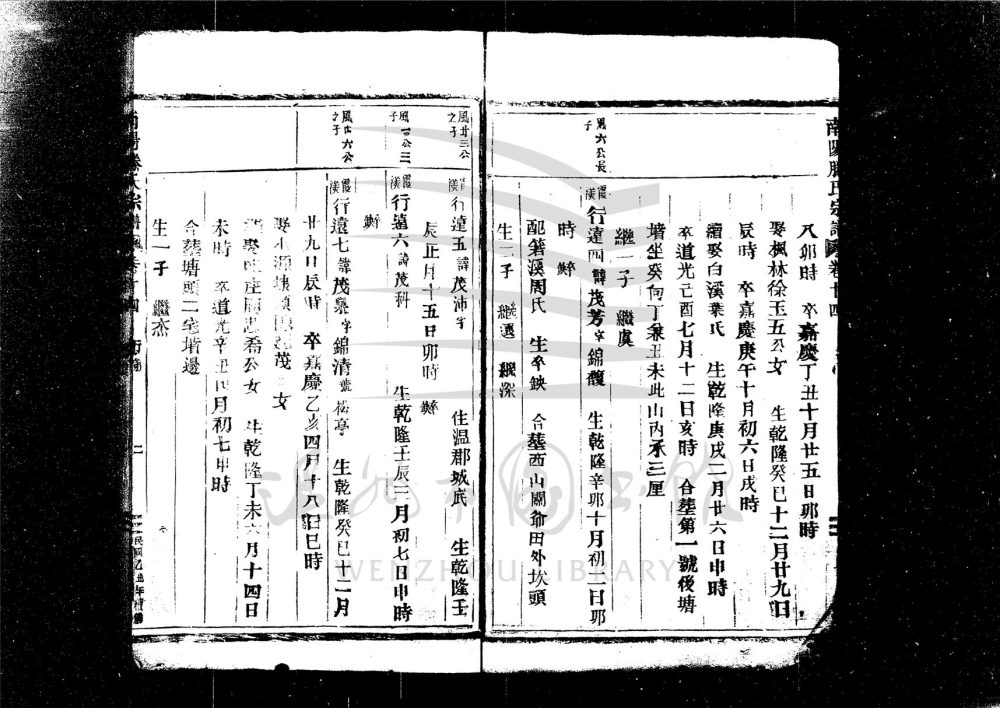 八卯時 卒嘉慶丁丑十月廿五日卯時
娶楓林徐玉五公女 生乾隆癸巳十二月廿九日
辰時 卒嘉慶庚午十月初六日戌時
續娶白溪葉氏 生乾隆庚戌二月廿六日申時
卒道光己酉七月十二日亥時 合墓第一號後塘
墙坐癸向丁兼丑未此山內承三厘
繼一子 繼虞
風六公長子
行遠四諱茂芳字錦馥 生乾隆辛卯十月初二日卯
時 缺
配箬溪周氏 生卒缺 合墓西山關爺田外坎頭
生二子 繼 繼深
風廿三公之子
行遠五諱茂沛字 住温郡城底 生乾隆壬
辰正月十五日卯時 缺
行遠六諱茂科 生乾隆壬辰二月初七日申時
缺
風廿六公之子
行遠七諱茂 字錦清號松亭 生乾隆癸巳十二月
廿九日辰時 卒嘉慶乙亥四月十八日巳時
娶 茂 女
公女 生乾隆丁未六月十四日
未時 卒道光辛丑四月初七申時
合墓塘頭二宅墻邊
生一子 繼杰
WENZHOU LIBRARY